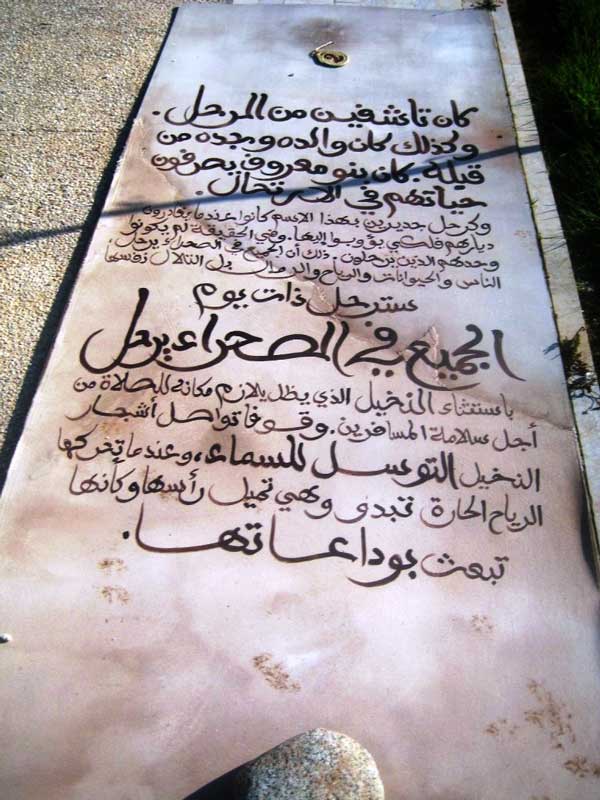 كان تاشفين من الرحل.
وكذلك كان والده وجده من
قبله. كان بنو معروف يصرفون
حياتهم في الارتحال.
وكرحل جديرين بهذا الاسم كانوا عندما يغادرون
ديارهم فلكي يؤوبوا إليها. وفي الحقيقة لم يكونوا
وحدهم الذين يرحلون. ذلك أن الجميع في الصحراء يرحل
الناس والحيوانات والرياح والرمال بل التلال نفسها
سترحل ذات يوم
الجميع في الصحراء يرحل
باستثناء النخيل الذي يظل يلازم مكانه للصلاة من
أجل سلامة المسافرين. وقوفا تواصل أشجار
النخيل التوسل للسماء، وعندما تحركها
الرياح الحارة تبدو وهي تميل رأسها وكأنها
تبعث بوداعاتها.